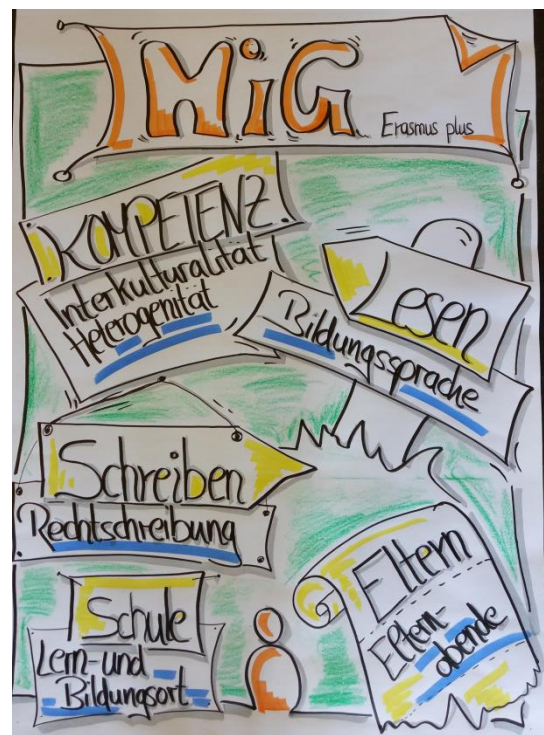 MiG
Erasmus plus
KOMPETENZ
Interkulturalität
Heterogenität
Lesen
Bildungssprache
Schreiben
Rechtschreibung
Schule
Lern- und
Bildungsort
Eltern
Eltern-
abende